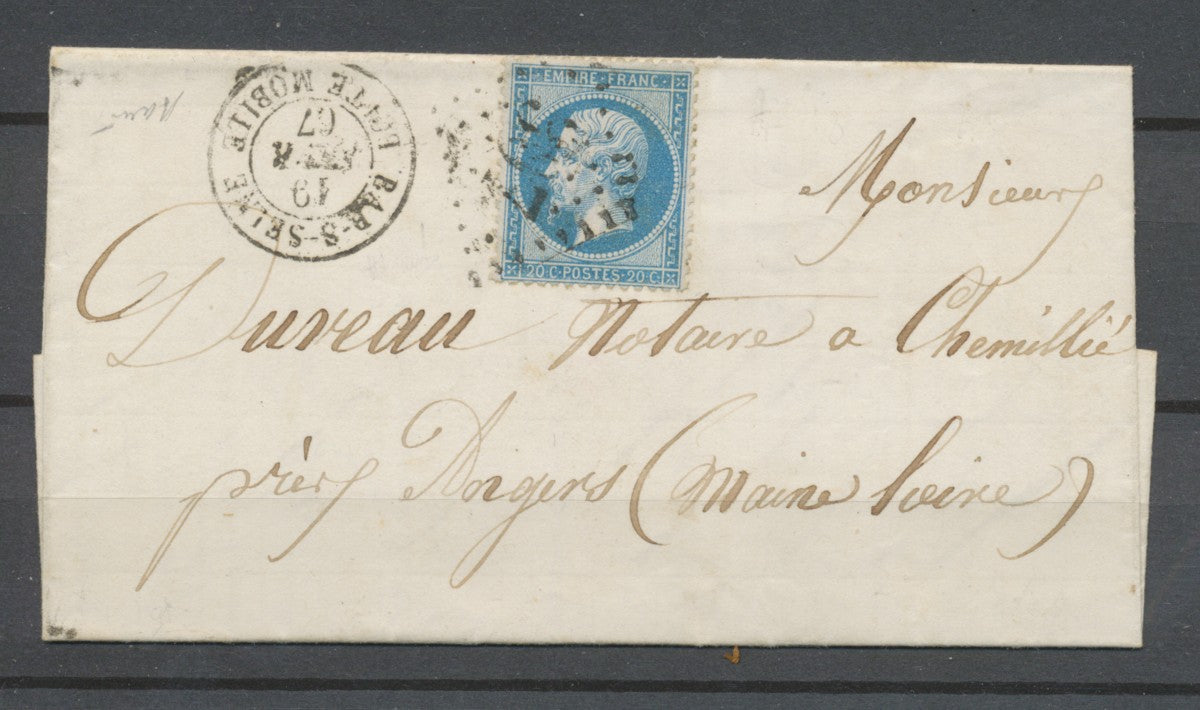 BAR-S-SEINE
BOITE MOBILE
19
67
EMPIRE·FRANC·
20·C·POSTES·20·C·
Monsieur
Duveau Notaire a Chemillié
près Angers (Maine Loire)